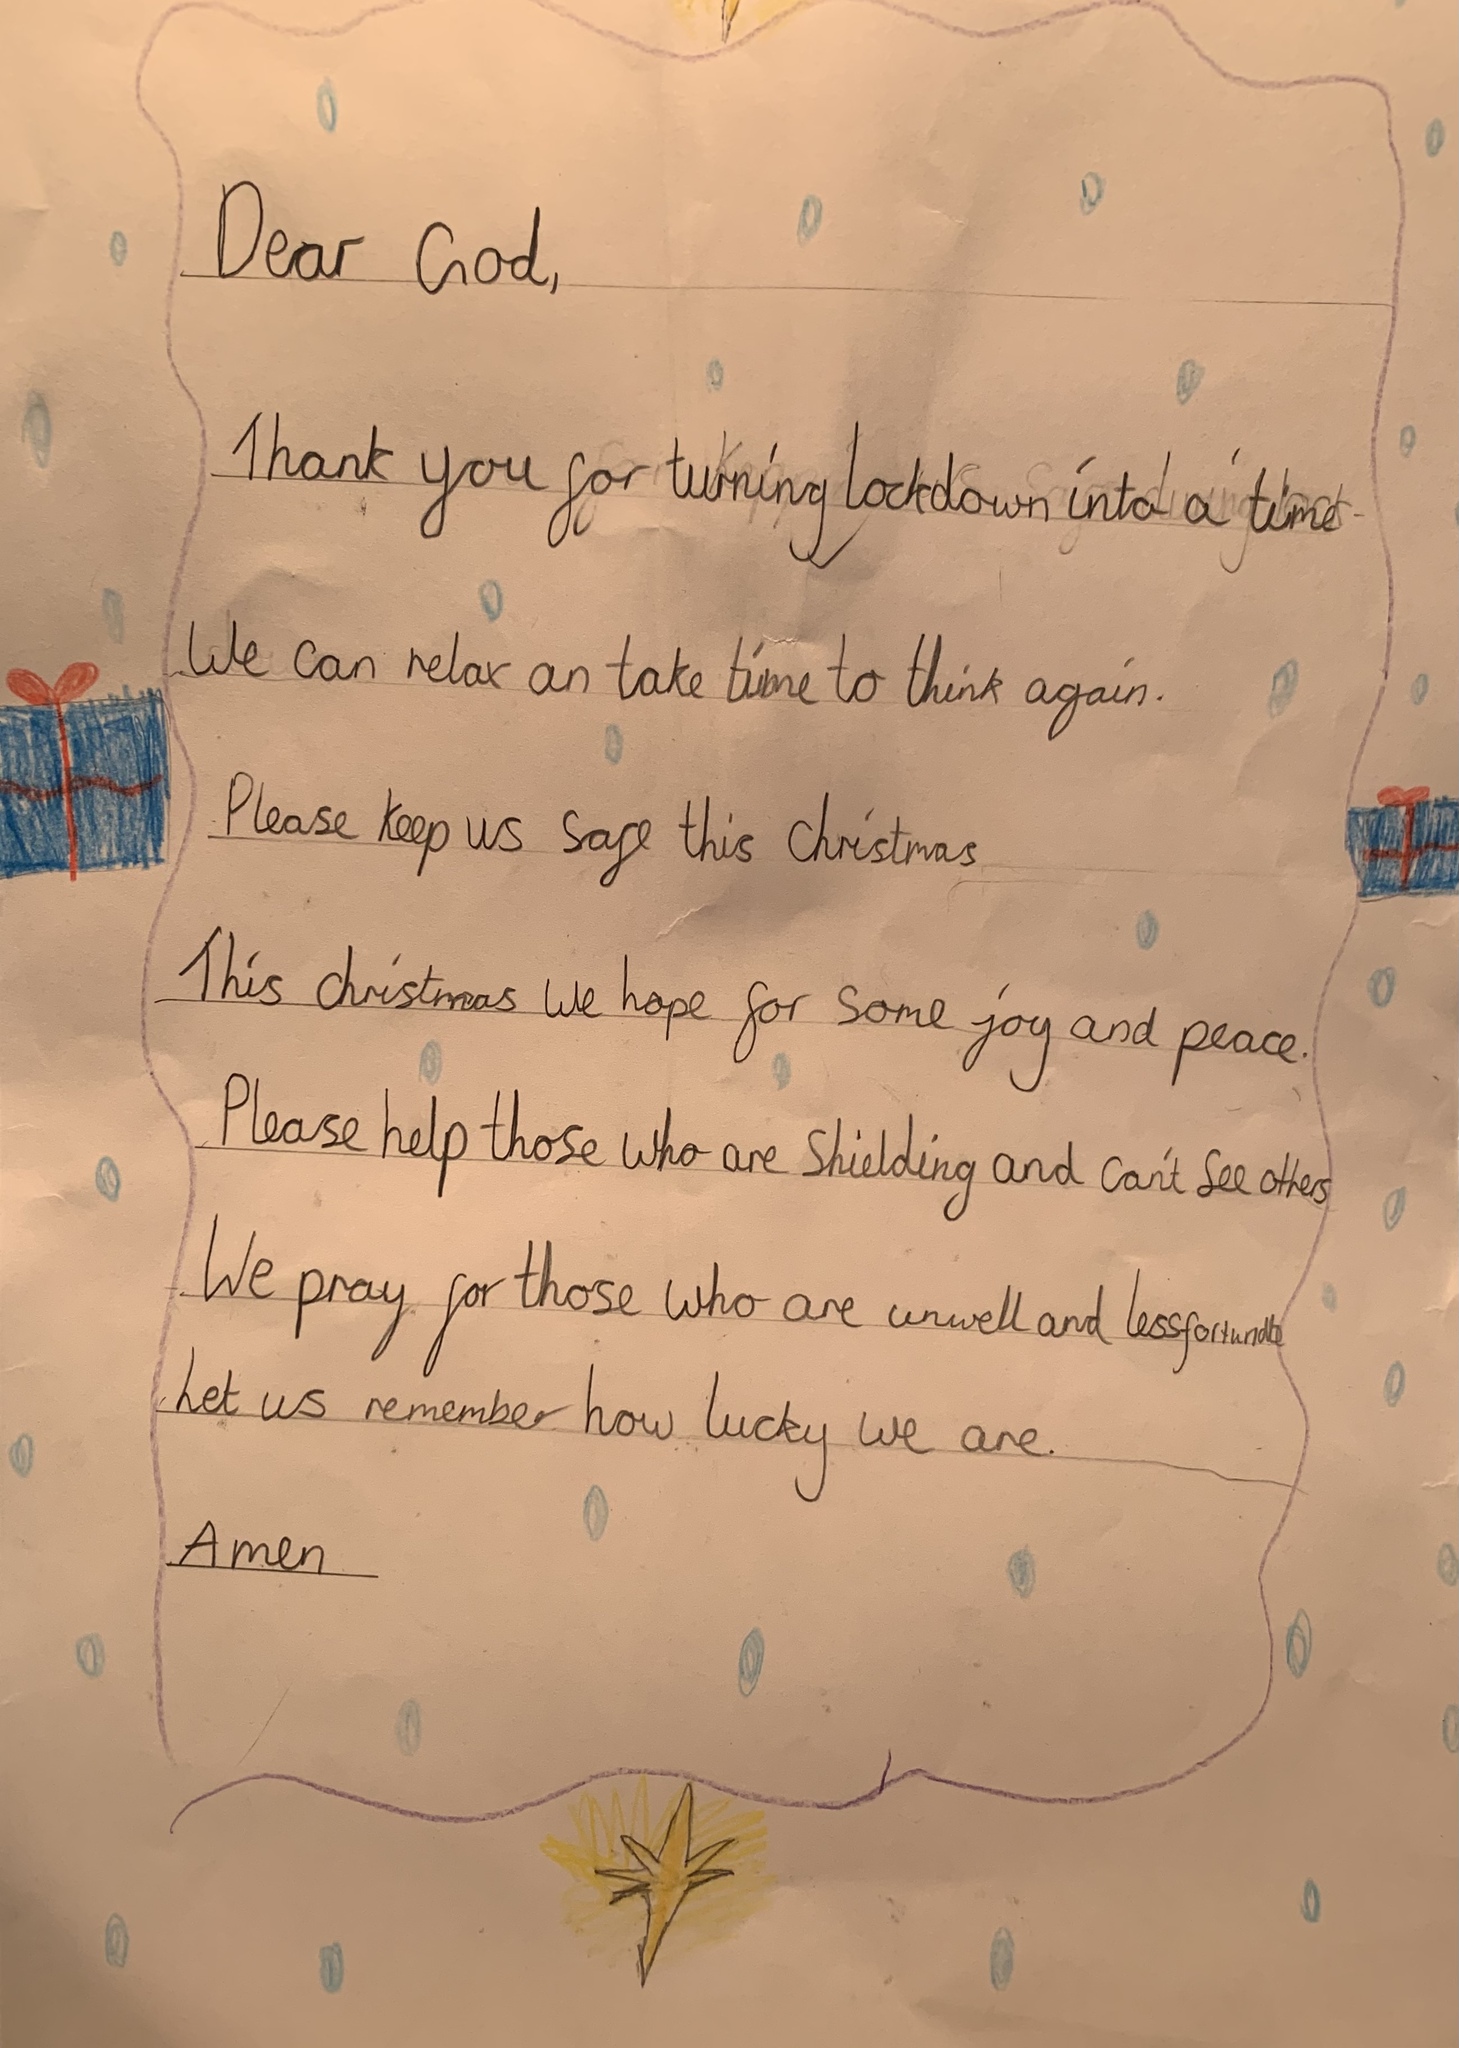 Dear God,
Thank you for turning lockdown into a time
We can relax an take time to think again.
Please keep us safe this christmas
This christmas we hope for some joy and peace.
Please help those who are shielding and can't see others
We pray for those who are unwell and less fortunate
Let us remember how lucky we are.
Amen